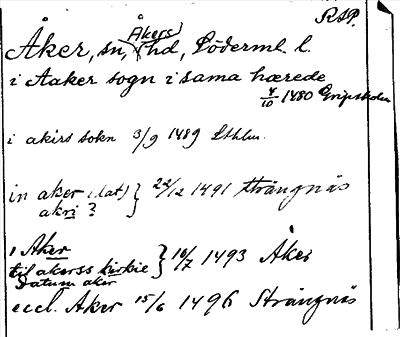 RSP.
Åker, sn, Åkers hd, Söderml. l.
i Aaker sogn i sama hærede
4/10 1480 Gripsholm
i akirs sokn 3/9 1489 Sthlm.
in aker (lat) } 22/12 1491 Strängnäs
akri ?
i Aker
til akerss kirkie } 10/7 1493 Åker
Datum aker
eccl. Aker 15/6 1496 Strängnäs